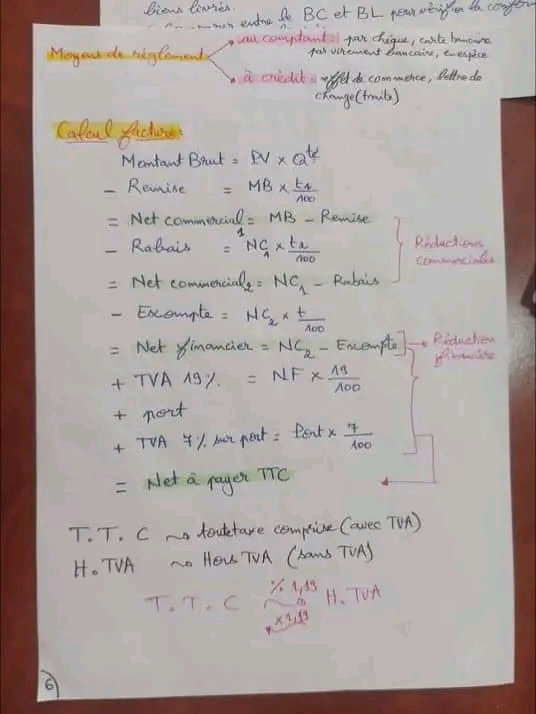 biens livrés.
entre le BC et BL pour vérifier la
Moyens de règlement
au comptant : par chèque, carte bancaire
par virement bancaire, en espèce
à crédit : effet de commerce, lettre de
change (traite)
Calcul facture :
Montant Brut = PV × Qté
- Remise = MB × tr/100
= Net commercial1 = MB - Remise
- Rabais = NC1 × tr/100
= Net commercial2 = NC1 - Rabais
Réductions
commerciales
- Escompte = NC2 × t/100
= Net financier = NC2 - Escompte
Réduction
financière
+ TVA 19% = NF × 19/100
+ port
+ TVA 7% sur port = Port × 7/100
= Net à payer TTC
T.T.C ~> toute taxe comprise (avec TVA)
H.TVA ~> Hors TVA (sans TVA)
T.T.C % 1,19 H.TVA
× 1,19
6